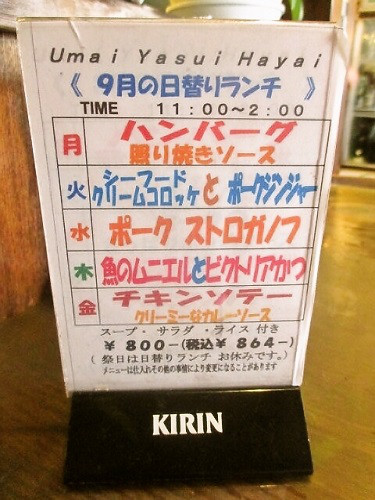 Umai Yasui Hayai
《 9月の日替りランチ 》
TIME 11:00〜2:00
月 ハンバーグ
照り焼きソース
火 シーフード
クリームコロッケ と ポークジンジャー
水 ポーク ストロガノフ
木 魚のムニエルとビクトリアかつ
金 チキンソテー
クリーミーなカレーソース
スープ・ サラダ ・ライス 付き
¥ 800-(税込¥ 864-)
( 祭日は日替りランチ お休みです。)
メニューは仕入れその他の事情により変更になることがあります
KIRIN